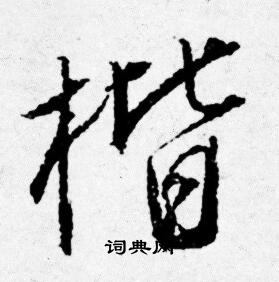 楷
词典网